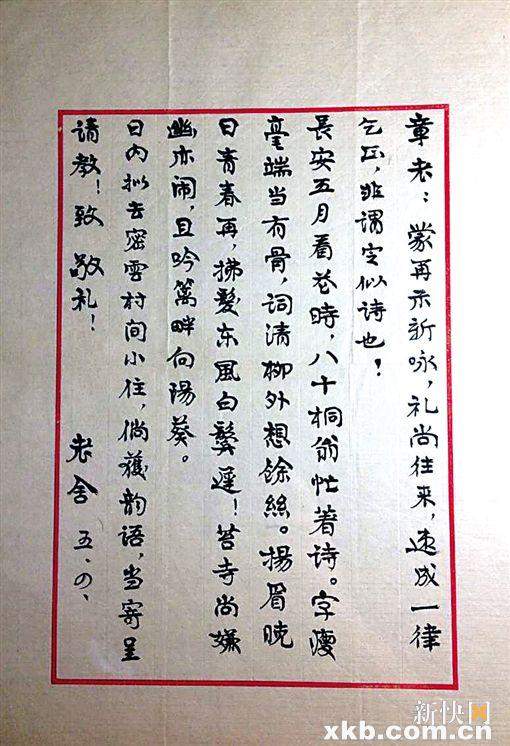 章老：蒙再示新咏，礼尚往来，速成一律
乞正，非谓定似诗也！
長安五月看花時，八十桐翁忙着诗。字瘦
毫端当有骨，词清柳外想餘絲。揚眉曉
日青春再，拂髮东風白鬓遲！苔寺尚嫌
幽亦闹，且吟篱畔向陽葵。
日内拟去密雲村间小住，倘獲韵语，当寄呈
请教！致 敬礼！
老舍 五、四、
新快网
xkb.com.cn